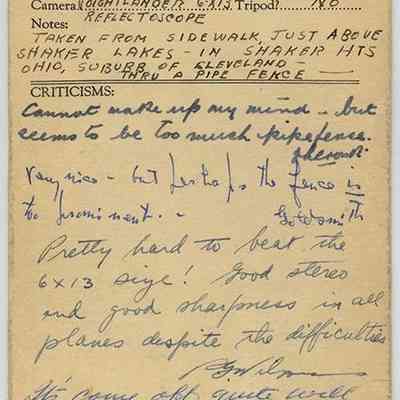 Camera VOIGHTLANDER 6X13 Tripod? NO
REFLECTOSCOPE
Notes:
TAKEN FROM SIDEWALK, JUST ABOVE
SHAKER LAKES - IN SHAKER HTS
OHIO, SUBURB OF CLEVELAND -
THRU A PIPE FENCE -
CRITICISMS:
Cannot make up my mind - but
seems to be too much pipe fence.
Very nice - but perhaps the fence is
too prominent. - Goldsmith
Pretty hard to beat the
6x13 size! Good stereo
and good sharpness in all
planes despite the difficulties
It's come off quite well